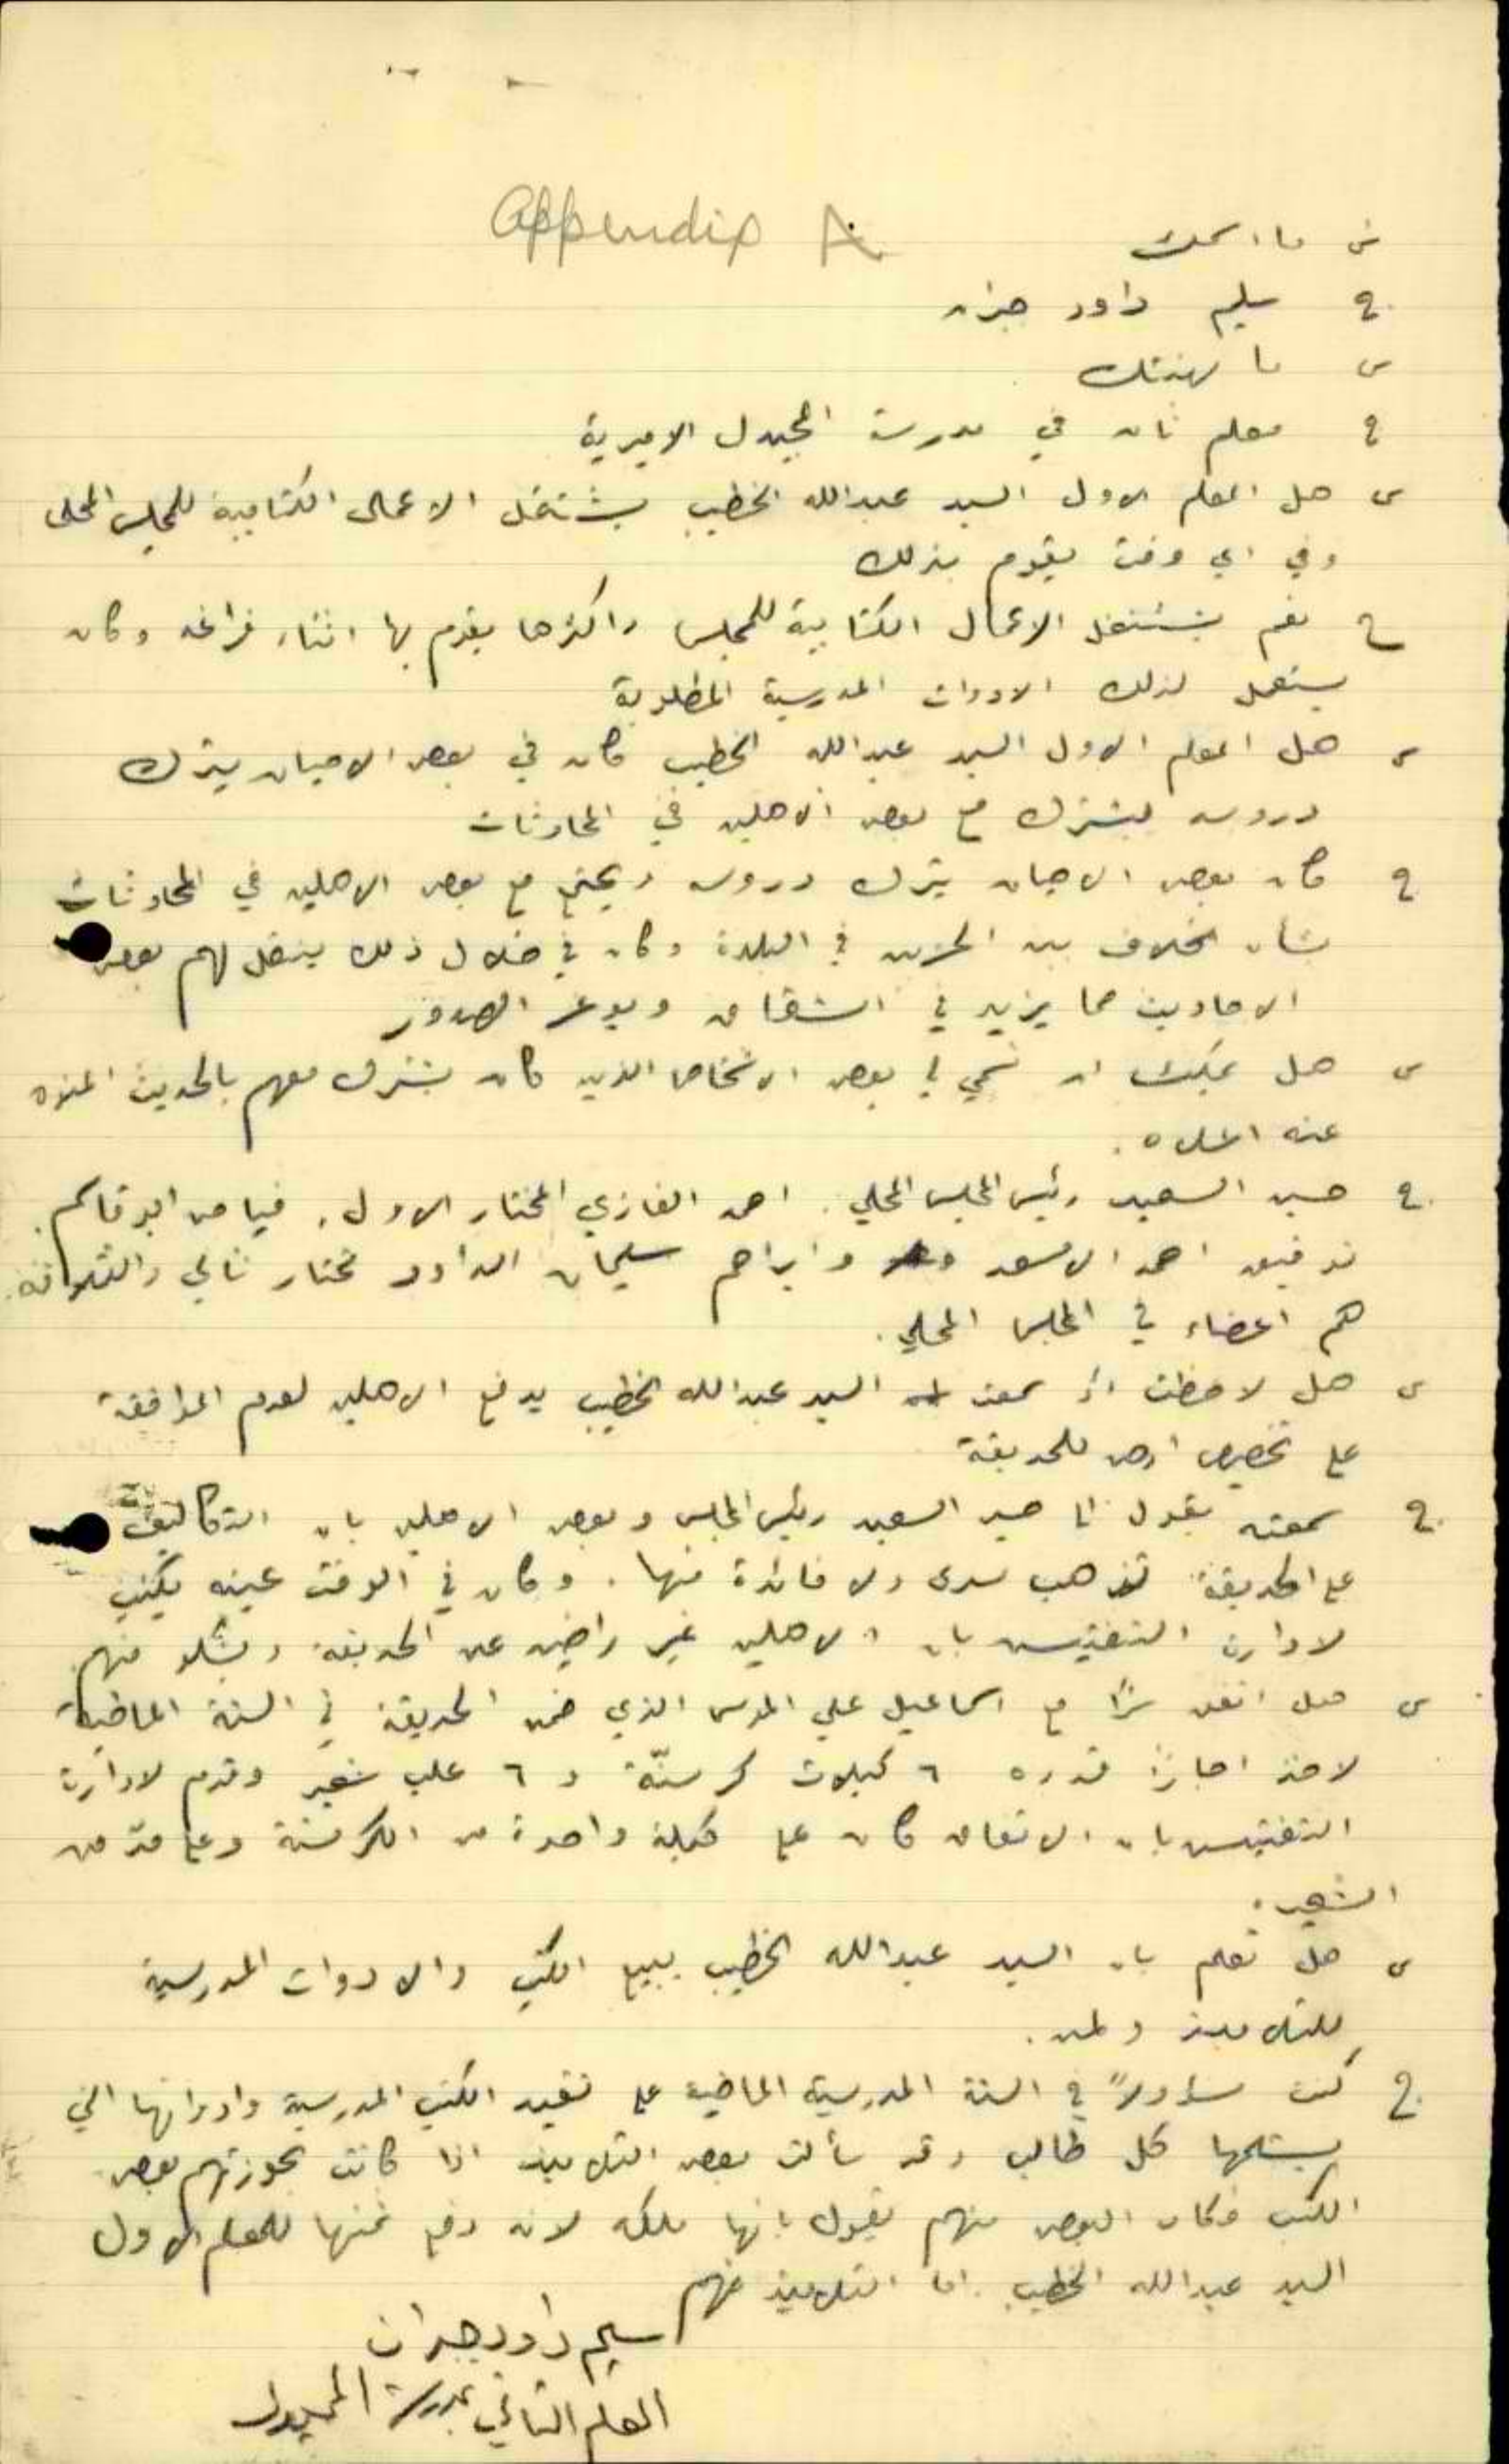 Appendix A
س ما اسمك
ج سليم داود جبران
س ما مهنتك
ج معلم ثان في مدرسة المجيدل الاميرية
س هل المعلم الاول السيد عبدالله الخطيب يشتغل الاعمال الكتابية للمجلس المحلي
وفي اي وقت يقوم بذلك
ج نعم يشتغل الاعمال الكتابية للمجلس واكثرها يقوم بها اثناء فراغه وكان
يستعمل لذلك الادوات المدرسية المطلوبة
س هل المعلم الاول السيد عبدالله الخطيب كان في بعض الاحيان يترك
دروسه ليشترك مع بعض الاهلين في المحادثات
ج كان بعض الاحيان يترك دروسه ويجتمع مع بعض الاهلين في المحادثات
بشأن الخلاف بين الحزبين في البلدة وكان في خلال ذلك ينقل لهم بعض
الاحاديث مما يزيد في الشقاق ويوغر الصدور
س هل يمكنك ان تسمي لي بعض الاشخاص الذين كان يشترك معهم بالحديث المنوه
عنه اعلاه.
ج حسين السعيد رئيس المجلس المحلي. احمد الغازي المختار الاول. فياض ابو قاسم.
توفيق احمد الاسعد وابراهيم سليمان الداود مختار ثاني والثلاثة
هم اعضاء في المجلس المحلي.
س هل لاحظت او سمعت السيد عبدالله الخطيب يدفع الاهلين لعدم الموافقة
على تخصيص ارض للحديقة
ج سمعته يقول الى حسين السعيد رئيس المجلس وبعض الاهلين بان التكاليف
على الحديقة تذهب سدى ولا فائدة منها. وكان في الوقت عينه يكتب
لادارة التفتيش بان الاهلين غير راضين عن الحديقة ويشكو منهم.
س هل اتفق سرًا مع اسماعيل علي الموسى الذي ضمن الحديقة في السنة الماضية
لاخذ اجارًا قدره ٦ كيلات كرسنّة و ٦ علب شعير وقدم لادارة
التفتيش بان الاتفاق كان على كيلة واحدة من الكرسنة وعلى من
الشعير.
س هل تعلم بان السيد عبدالله الخطيب يبيع الكتب والادوات المدرسية
للتلاميذ ولمن.
ج كنت مسؤولاً في السنة المدرسية الماضية على تقييد الكتب المدرسية وادواتها التي
يستلمها كل طالب وقد سألت بعض التلاميذ اذا كانت بحوزتهم بعض
الكتب فكان البعض منهم يقول بانها ملكه لانه دفع ثمنها للمعلم الاول
السيد عبدالله الخطيب. اما التلاميذ فهم
سليم داود جبران
المعلم الثاني بمدرسة المجيدل